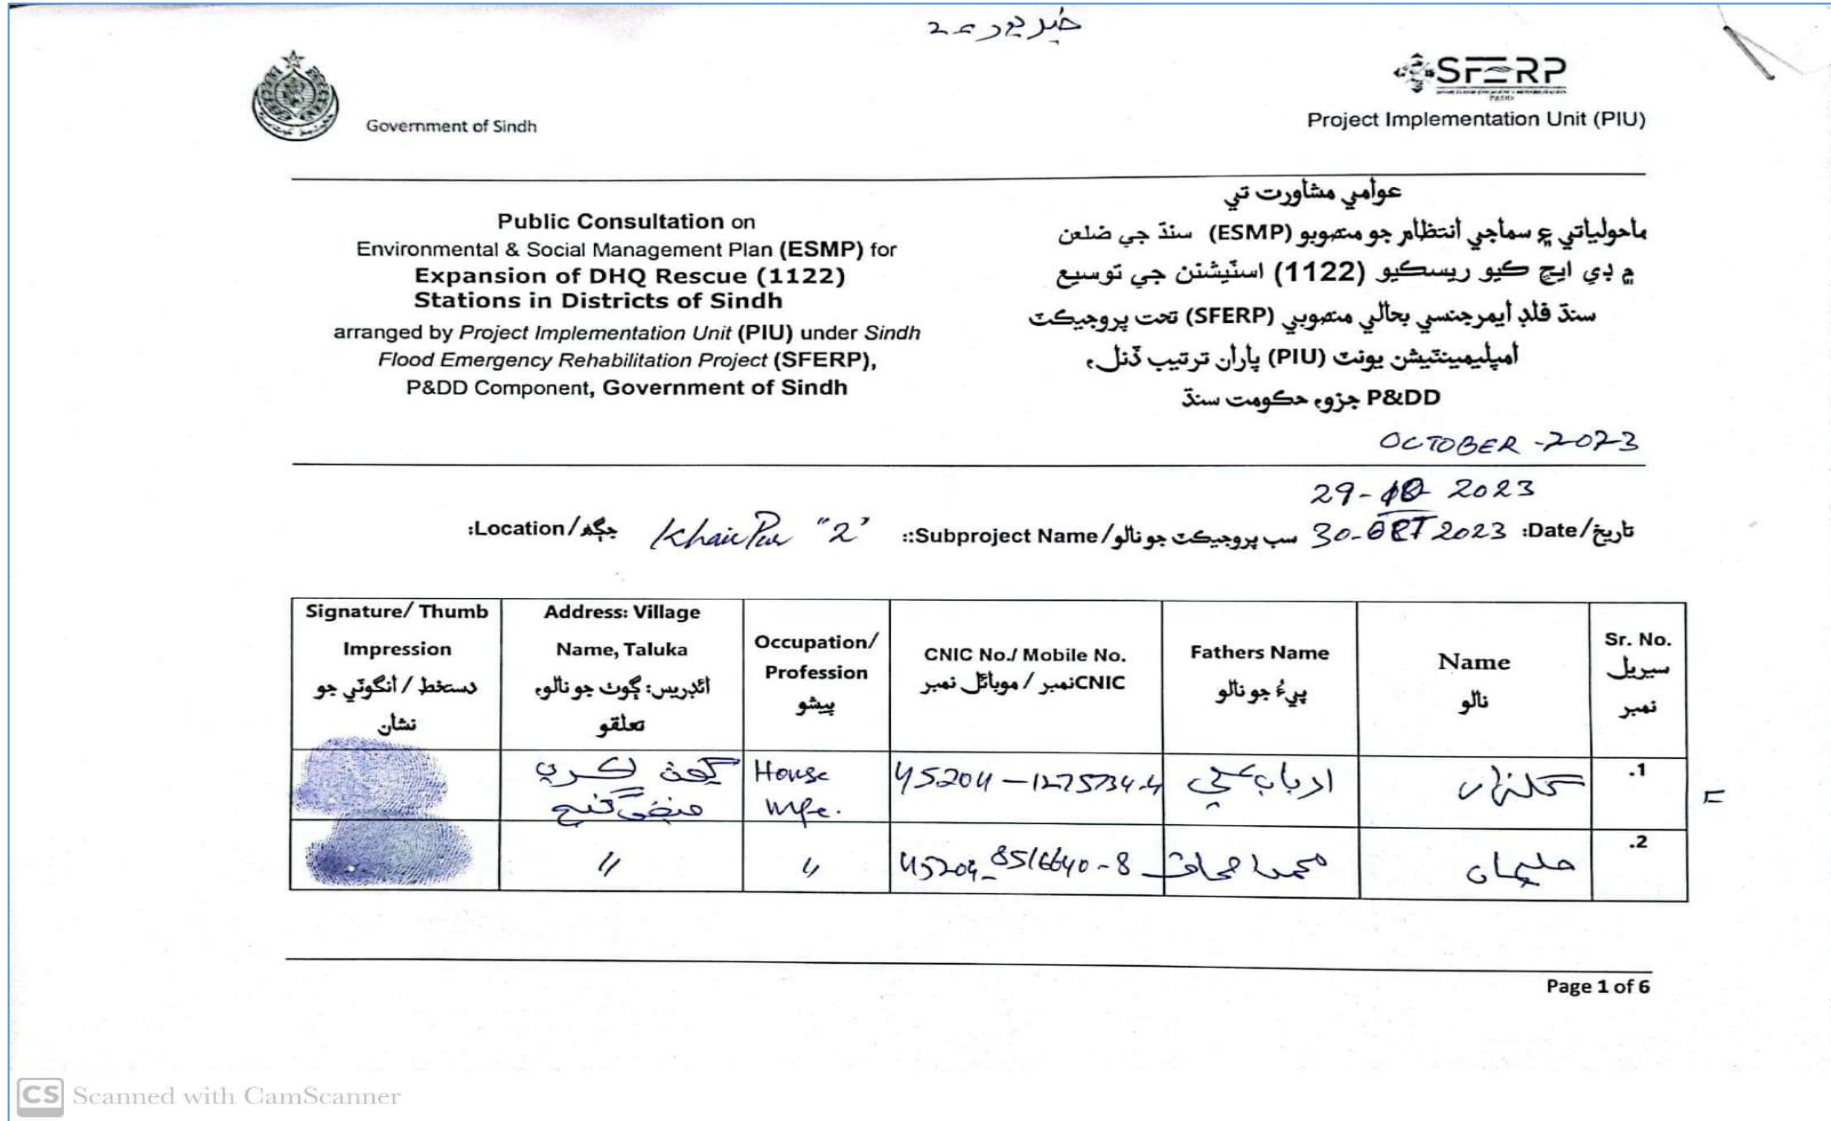 خيرپور - 2
Government of Sindh
SFERP
Project Implementation Unit (PIU)
Public Consultation on
Environmental & Social Management Plan (ESMP) for
Expansion of DHQ Rescue (1122)
Stations in Districts of Sindh
arranged by Project Implementation Unit (PIU) under Sindh
Flood Emergency Rehabilitation Project (SFERP),
P&DD Component, Government of Sindh
عوامي مشاورت تي
ماحولياتي ۽ سماجي انتظام جو منصوبو (ESMP) سنڌ جي ضلعن
۾ ڊي ايڇ ڪيو ريسڪيو (1122) اسٽيشنن جي توسيع
سنڌ فلڊ ايمرجنسي بحالي منصوبي (SFERP) تحت پروجيڪٽ
امپليمينٽيشن يونٽ (PIU) پاران ترتيب ڏنل،
P&DD جزو، حڪومت سنڌ
OCTOBER -2023
29- 2023
تاريخ/Date: 30-OCT 2023 سب پروجيڪٽ جو نالو/Subproject Name:: KhairPur "2" جڳھ/Location:
Signature/ Thumb Impression
دستخط / انگوٽي جو نشان
Address: Village Name, Taluka
ائڊريس: ڳوٺ جو نالو، تعلقو
Occupation/ Profession
پيشو
CNIC No./ Mobile No.
CNICنمبر / موبائل نمبر
Fathers Name
پيءُ جو نالو
Name
نالو
Sr. No.
سيريل نمبر
.1
گلزار
House Wife.
.2
حليمان
45204-8516640-8
〃
〃
Page 1 of 6
CS Scanned with CamScanner